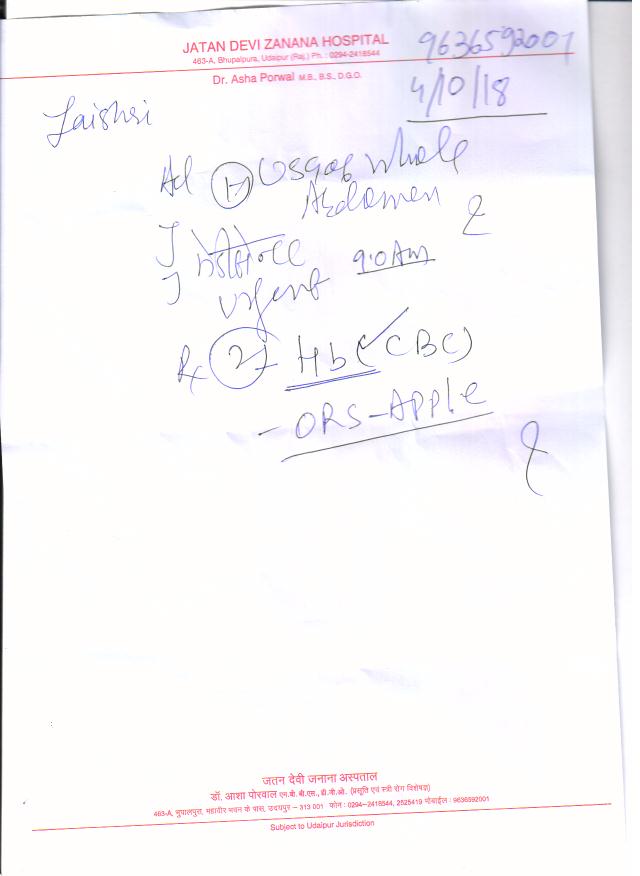 JATAN DEVI ZANANA HOSPITAL
463-A, Bhupalpura, Udaipur (Raj.) Ph. : 0294-2418544
Dr. Asha Porwal M.B., B.S., D.G.O.
9636592001
4/10/18
Jaishri
Ad (1) USG of whole
Abdomen
urgent 9.0 Am
Rx (2) Hb (CBC)
- ORS - APPle
जतन देवी जनाना अस्पताल
डॉ. आशा पोरवाल एम.बी.बी.एस., डी.जी.ओ. (प्रसूति एवं स्त्री रोग विशेषज्ञ)
463-A, भुपालपुरा, महावीर भवन के पास, उदयपुर – 313 001 फोन : 0294-2418544, 2525419 मोबाईल : 9636592001
Subject to Udaipur Jurisdiction